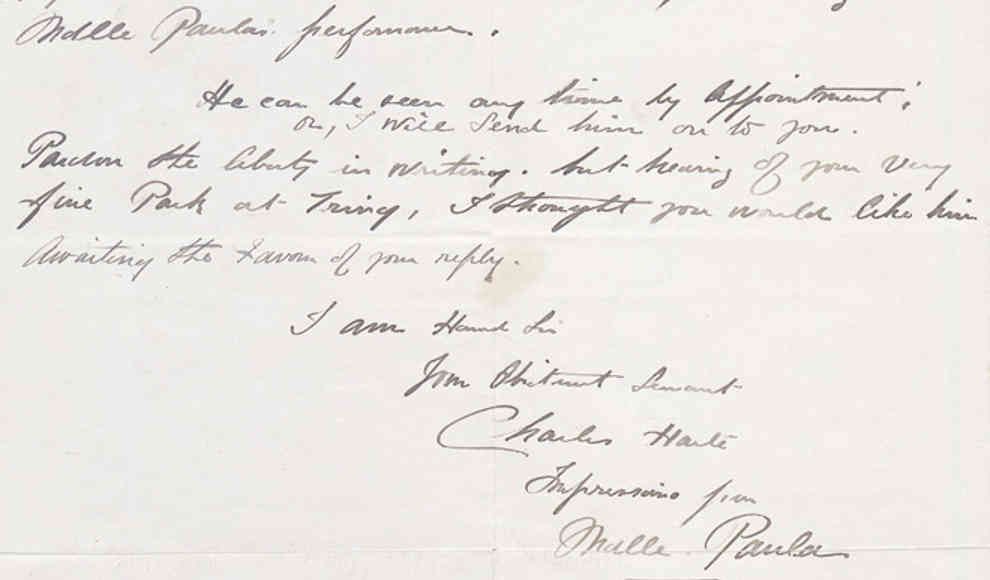 Mdlle Paula's performance.
He can be seen any time by Appointment;
or, I will Send him on to you.
Pardon the liberty in writing. but hearing of your very
fine Park at Tring, I thought you would like him
Awaiting the favour of your reply.
I am Hond Sir
Your Obedient Servant
Charles Harte
Impressario for
Mdlle. Paula